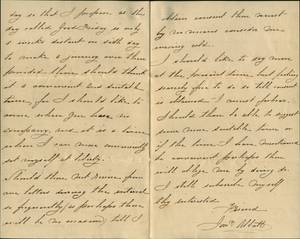 day so that I propose as this
day called good Friday is only
a weeks distant on sixth day
to make a journey over there
provided thou should think
it a convenient and suitable
time, for I should like to
come when you have no
company, and at a time
when I can more conveniently
set myself at liberty.
Should thou not receive from
me letters during the interval
so frequently as perhaps there
will be no occasion, till I
obtain consent thou must
by no means consider me
coming cold.
I should like to say more
at the present time, but feeling
scarcely free to do so till consent
is obtained I must forbear.
Should thou be able to suggest
some more suitable hour or
if the time I have mentioned
be convenient perhaps thou
will oblige me by doing so.
I still subscribe myself
thy interested
Friend
Jonn. Abbatt